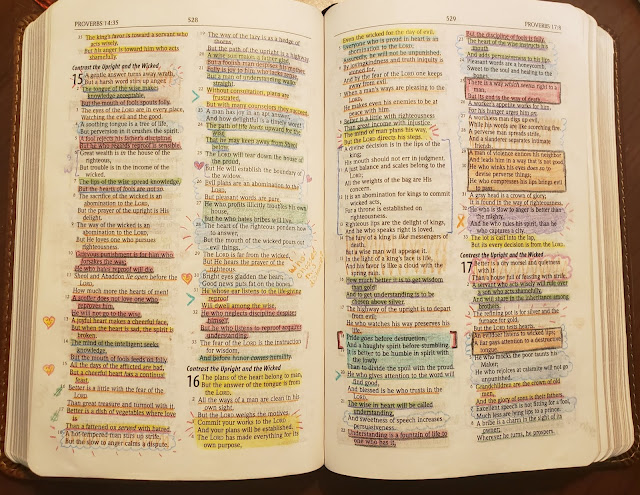 PROVERBS 14:35
528
35 The king's favor is toward a servant who
acts wisely,
But his anger is toward him who acts
shamefully.
Contrast the Upright and the Wicked
15 A gentle answer turns away wrath,
But a harsh word stirs up anger.
2 The tongue of the wise makes
knowledge acceptable,
But the mouth of fools spouts folly.
3 The eyes of the LORD are in every place,
Watching the evil and the good.
4 A soothing tongue is a tree of life,
But perversion in it crushes the spirit.
5 A fool rejects his father's discipline,
But he who regards reproof is sensible.
6 Great wealth is in the house of the
righteous,
But trouble is in the income of the
wicked.
7 The lips of the wise spread knowledge,
But the hearts of fools are not so.
8 The sacrifice of the wicked is an
abomination to the LORD,
But the prayer of the upright is His
delight.
9 The way of the wicked is an
abomination to the LORD,
But He loves one who pursues
righteousness.
10 Grievous punishment is for him who
forsakes the way;
He who hates reproof will die.
11 Sheol and Abaddon lie open before the
LORD,
How much more the hearts of men!
12 A scoffer does not love one who
reproves him,
He will not go to the wise.
13 A joyful heart makes a cheerful face,
But when the heart is sad, the spirit is
broken.
14 The mind of the intelligent seeks
knowledge,
But the mouth of fools feeds on folly.
15 All the days of the afflicted are bad,
But a cheerful heart has a continual
feast.
16 Better is a little with the fear of the
LORD
Than great treasure and turmoil with it.
17 Better is a dish of vegetables where love
is
Than a fattened ox served with hatred.
18 A hot-tempered man stirs up strife,
But the slow to anger calms a dispute.
19 The way of the lazy is as a hedge of
thorns,
But the path of the upright is a highway.
20 A wise son makes a father glad,
But a foolish man despises his mother.
21 Folly is joy to him who lacks sense,
But a man of understanding walks
straight.
22 Without consultation, plans are
frustrated,
But with many counselors they succeed.
23 A man has joy in an apt answer,
And how delightful is a timely word!
24 The path of life leads upward for the
wise
That he may keep away from Sheol
below.
25 The LORD will tear down the house of
the proud,
But He will establish the boundary of
the widow.
26 Evil plans are an abomination to the
LORD,
But pleasant words are pure.
27 He who profits illicitly troubles his
own house,
But he who hates bribes will live.
28 The heart of the righteous ponders how
to answer,
But the mouth of the wicked pours out
evil things.
29 The LORD is far from the wicked,
But He hears the prayer of the
righteous.
30 Bright eyes gladden the heart;
Good news puts fat on the bones.
31 He whose ear listens to the life-giving
reproof
Will dwell among the wise.
32 He who neglects discipline despises
himself,
But he who listens to reproof acquires
understanding.
33 The fear of the LORD is the instruction for
wisdom,
And before honor comes humility.
Contrast the Upright and the Wicked
16 The plans of the heart belong to man,
But the answer of the tongue is from the
LORD.
2 All the ways of a man are clean in his
own sight,
But the LORD weighs the motives.
3 Commit your works to the LORD
And your plans will be established.
4 The LORD has made everything for its
own purpose,
529
PROVERBS 17:8
Even the wicked for the day of evil.
5 Everyone who is proud in heart is an
abomination to the LORD;
Assuredly, he will not be unpunished.
6 By lovingkindness and truth iniquity is
atoned for,
And by the fear of the LORD one keeps
away from evil.
7 When a man's ways are pleasing to the
LORD,
He makes even his enemies to be at
peace with him.
8 Better is a little with righteousness
Than great income with injustice.
9 The mind of man plans his way,
But the LORD directs his steps.
10 A divine decision is in the lips of the
king;
His mouth should not err in judgment.
11 A just balance and scales belong to the
LORD;
All the weights of the bag are His
concern.
12 It is an abomination for kings to commit
wicked acts,
For a throne is established on
righteousness.
13 Righteous lips are the delight of kings,
And he who speaks right is loved.
14 The fury of a king is like messengers of
death,
But a wise man will appease it.
15 In the light of a king's face is life,
And his favor is like a cloud with the
spring rain.
16 How much better it is to get wisdom than
gold!
And to get understanding is to be
chosen above silver.
17 The highway of the upright is to depart
from evil;
He who watches his way preserves his
life.
18 Pride goes before destruction,
And a haughty spirit before stumbling.
19 It is better to be humble in spirit with
the lowly
Than to divide the spoil with the proud.
20 He who gives attention to the word will
find good,
And blessed is he who trusts in the
LORD.
21 The wise in heart will be called
understanding,
And sweetness of speech increases
persuasiveness.
22 Understanding is a fountain of life to
one who has it,
But the discipline of fools is folly.
23 The heart of the wise instructs his
mouth
And adds persuasiveness to his lips.
24 Pleasant words are a honeycomb,
Sweet to the soul and healing to the
bones.
25 There is a way which seems right to a
man,
But its end is the way of death.
26 A worker's appetite works for him,
For his hunger urges him on.
27 A worthless man digs up evil,
While his words are like scorching fire.
28 A perverse man spreads strife,
And a slanderer separates intimate
friends.
29 A man of violence entices his neighbor
And leads him in a way that is not good.
30 He who winks his eyes does so to
devise perverse things;
He who compresses his lips brings evil
to pass.
31 A gray head is a crown of glory;
It is found in the way of righteousness.
32 He who is slow to anger is better than
the mighty,
And he who rules his spirit, than he
who captures a city.
33 The lot is cast into the lap,
But its every decision is from the LORD.
Contrast the Upright and the Wicked
17 Better is a dry morsel and quietness
with it
Than a house full of feasting with strife.
2 A servant who acts wisely will rule over
a son who acts shamefully,
And will share in the inheritance among
brothers.
3 The refining pot is for silver and the
furnace for gold,
But the LORD tests hearts.
4 An evildoer listens to wicked lips;
A liar pays attention to a destructive
tongue.
5 He who mocks the poor taunts his
Maker;
He who rejoices at calamity will not go
unpunished.
6 Grandchildren are the crown of old
men,
And the glory of sons is their fathers.
7 Excellent speech is not fitting for a fool,
Much less are lying lips to a prince.
8 A bribe is a charm in the sight of its
owner;
Wherever he turns, he prospers.